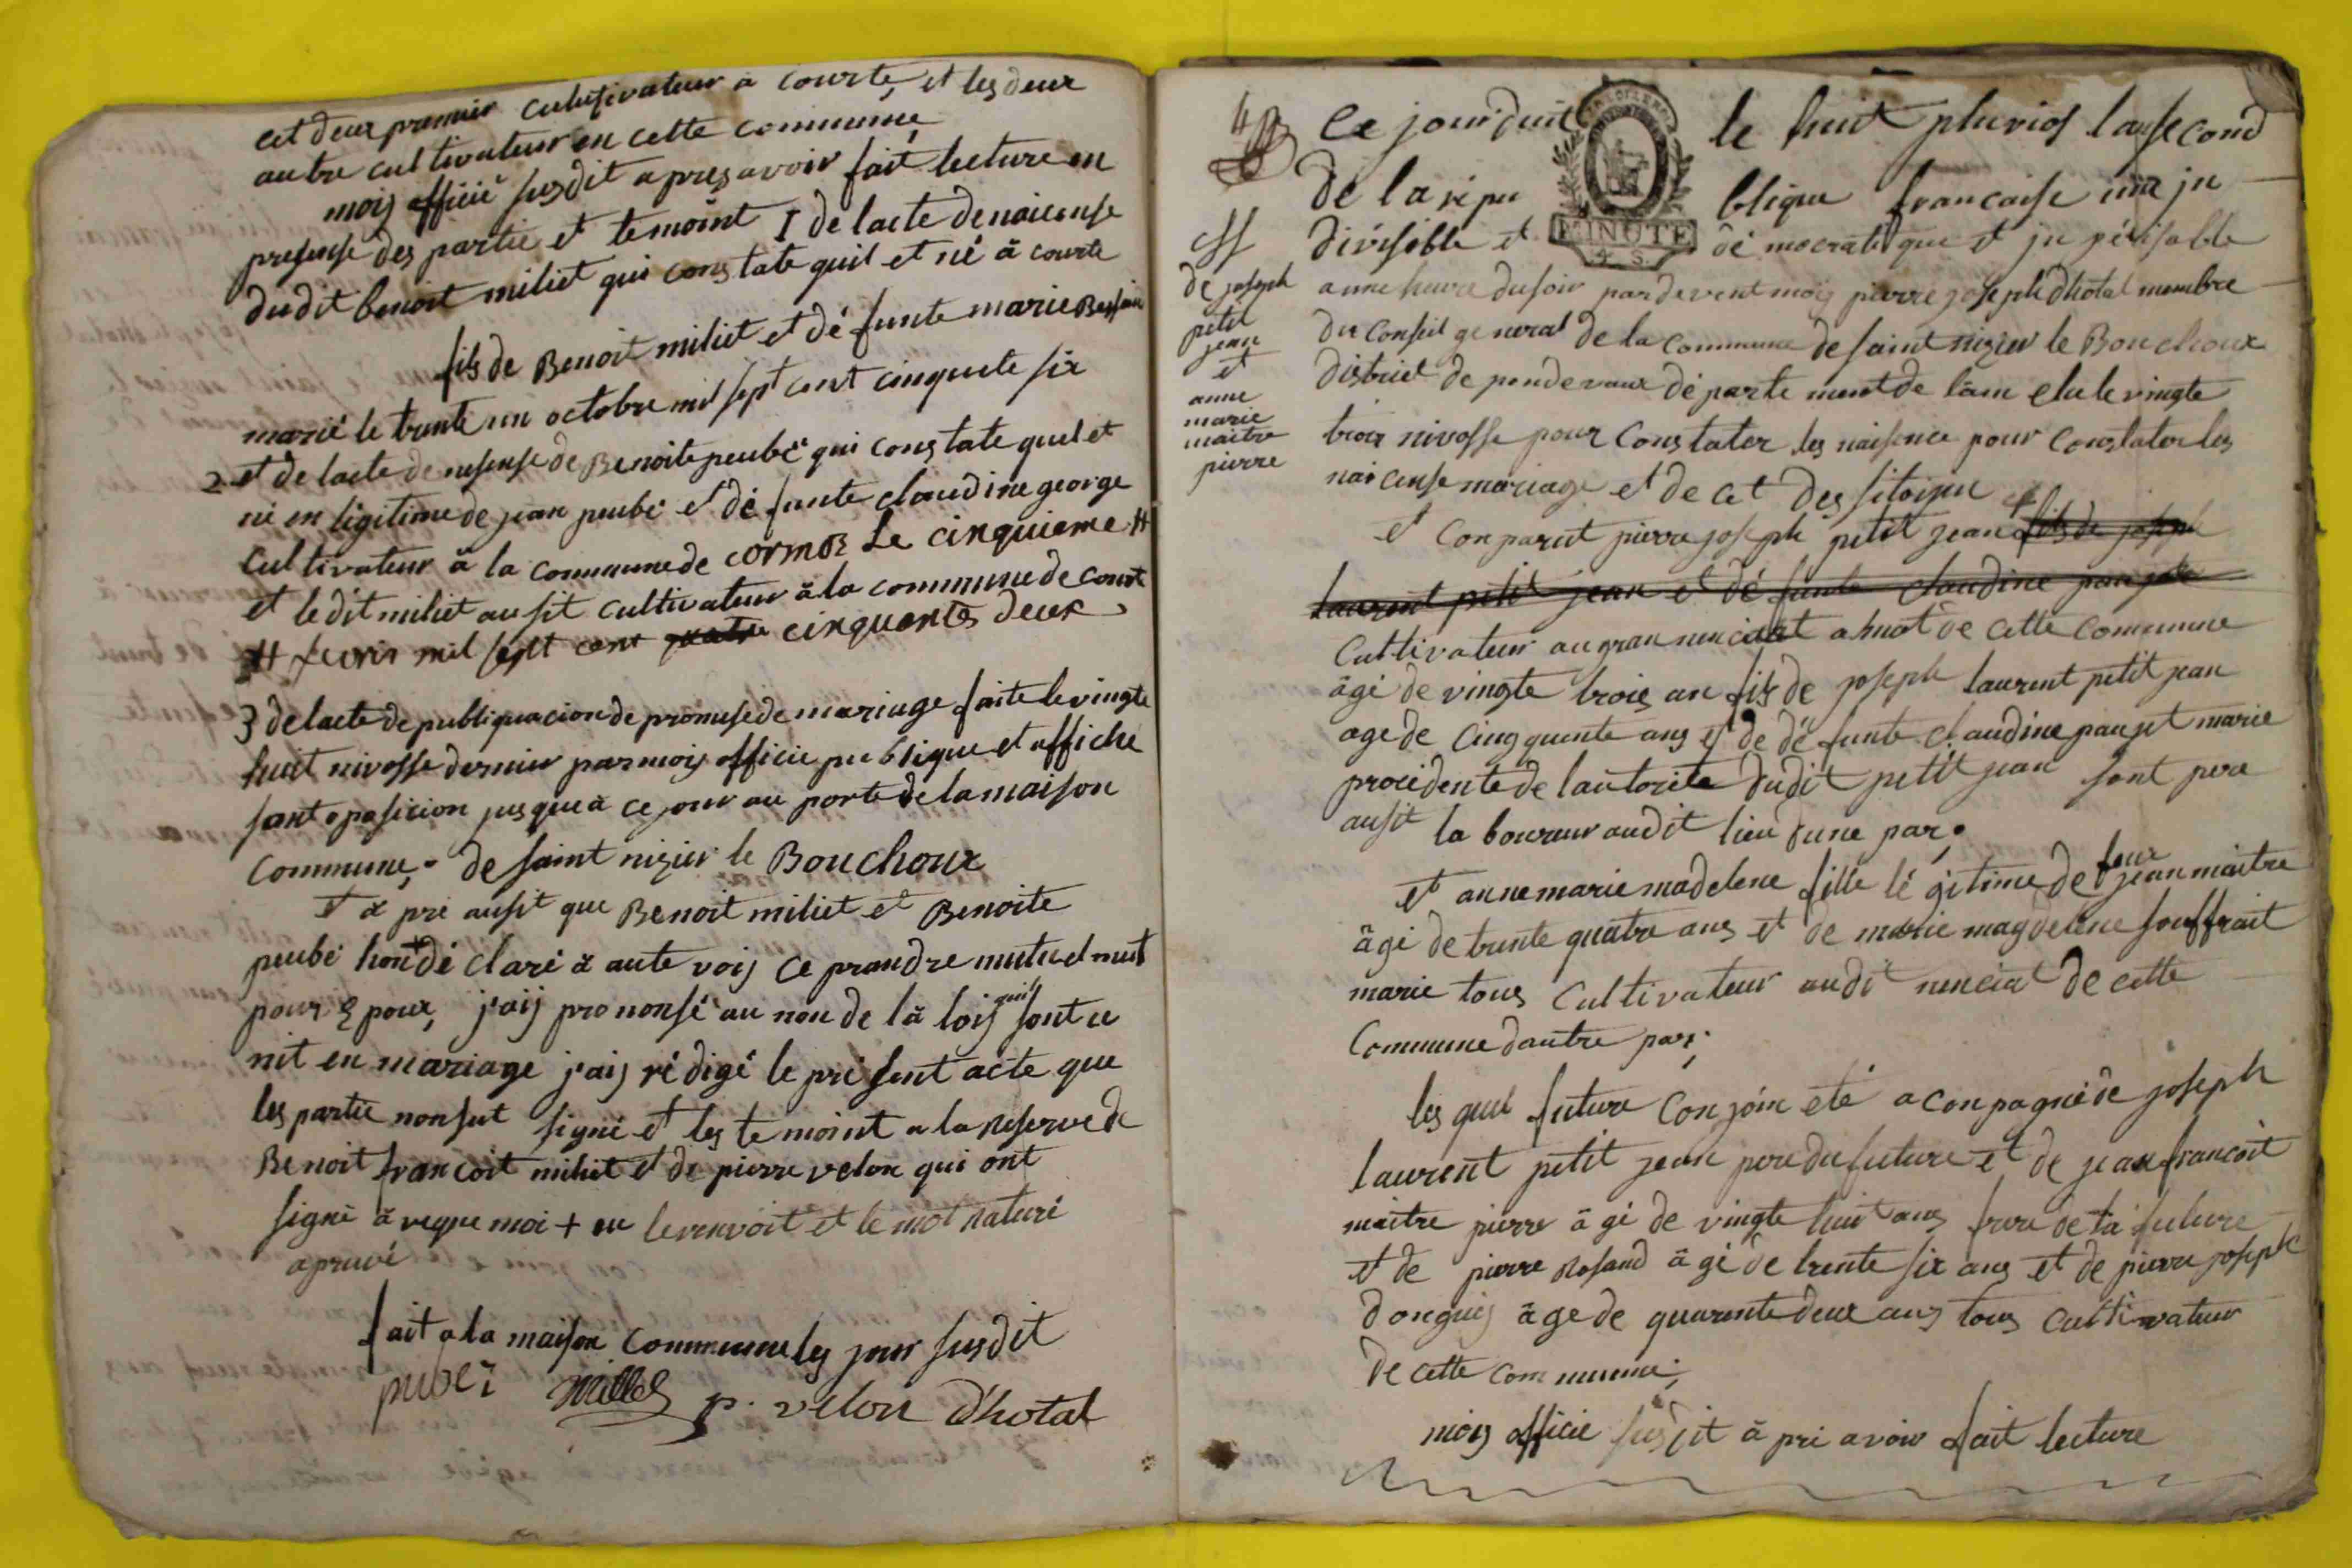 cet deux premier cultivateur a courte, et les deux
autre cultivateur en cette commune
mois officié susdit apres avoir fait lecture en
presense des partie et temoint 1 de lacte de naicense
dudit benoit miliet qui constate quil et né à courte
fils de Benoit miliet et dé funte marie
marié le trente un octobre mil sept cent cinquete six
2 et de lacte de nesense de Benoite peubé qui constate quel et
né en ligitime de jean peubé et dé funte claudine george
cultivateur à la commune de cormoz Le cinquieme #
et le dit miliet ausit cultivateur à la commune de courte
# fevrir mil sept cent quatre cinquantes deux
3 de lacte de publiquacion de promese de mariage faite le vingte
huit nivosse dernier par mois officié publique et affiche
sant oposicion jusquea ce jour au porte de la maison
commune, de saint nizier le Bouchoux
et a pré ausit que Benoit miliet et Benoite
peubé hon dé claré à aute vois ce prandre mutuelment
pour Epoux, j'aij prononsé au non de là loij quil sont u
nit en mariage j'aij rédigé le présent acte que
les partie non sut signé et les temoint a la reserve de
Benoit francoit miliet et de pierre velon qui ont
signé àveque moi + en le renvoit et le mot raturé
apruvé
fait a la maison commune les jour susdit
pubei millet p. velon d'hotal
Ce jourduit le huit pluvios lan second
de la répu blique francaise une jn
divisible et dé mocratique et jn périsable
MINUTE
a une heure du soir pardevent mois pierre joseph dhotal membre
du conseil general de la commune de saint nizier le Bouchoux
district de pondevaux département de lain elu le vingte
trois nivosse pour constater les naisence pour constater les
naicense mariage et de cet des sitoijen
et conparut pierre joseph petit jean fils de joseph
laurent petit jean et dé funte claudine panjet
cultivateur au gran nenciat a huot de cette commune
âgé de vingte trois an fils de joseph laurent petit jean
age de cinqquente ans et de dé funte claudine panjet marie
procédente de lautorité dudit petit jean sont pere
ausit la boureur audit lieu dune par,
et anne marie madelene fille lé gitime de feux jean maitre
âgé de trente quatre ans et de marie magdelene souffrait
marie tous cultivateur audit nenciat de cette
Commune dautre par;
les quel future conjoin eté aconpagné de joseph
laurent petit jean pere du future et de jean francoit
maitre pierre âgé de vingte huit ans frere de la future
et de pierre Rosand âgé de trente six ans et de pierre joseph
donguij âge de quarente deux ans tous cultivateur
de cette commune;
mois officié susdit à pré avoir fait lecture
de joseph
petit
jean
et
anne
marie
maitre
pierre